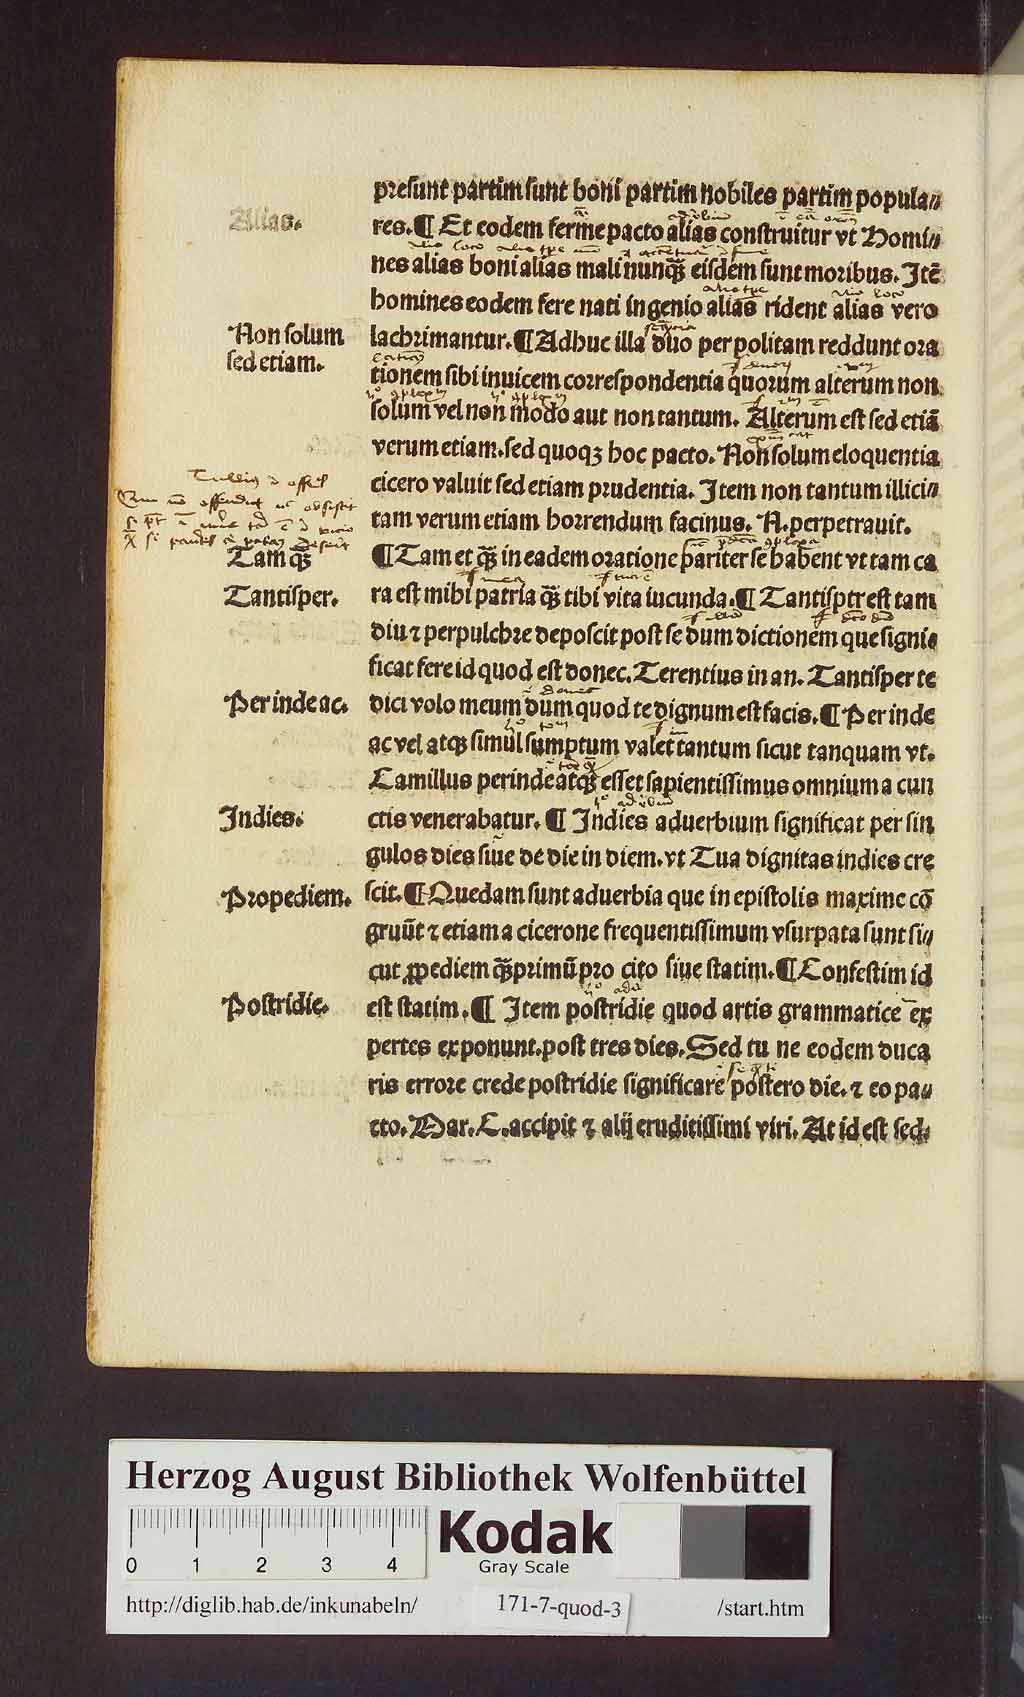 presunt partim sunt boni partim nobiles partim popula⸗
Alias.
res. ¶ Et eodem ferme pacto alias construitur vt Homi⸗
nes alias boni alias mali nunqꝫ̄ eisdem sunt moribus. Itē
homines eodem fere nati ingenio alias rident alias vero
Non solum
lachrimantur. ¶ Adhuc illa duo perpolitam reddunt ora
sed etiam.
tionem sibi inuicem correspondentia quorum alterum non
solum vel non modo aut non tantum. Alterum est sed etiā
verum etiam. sed quoqꝫ hoc pacto. Non solum eloquentia
cicero valuit sed etiam prudentia. Item non tantum illici⸗
tam verum etiam horrendum facinus. N. perpetrauit.
Tam qꝫ̄
¶ Tam et qꝫ̄ in eadem oratione pariter se habent vt tam ca
Tantisper.
ra est mihi patria qꝫ̄ tibi vita iucunda. ¶ Tantisper est tam
diu ⁊ perpulchre deposcit post se dum dictionem que signi⸗
ficat fere id quod est donec. Terentius in an. Tantisper te
Perinde ac.
dici volo meum dum quod te dignum est facis. ¶ Perinde
ac vel atqꝫ simul sumptum valet tantum sicut tanquam vt.
Camillus perinde atqꝫ esset sapientissimus omnium a cun
Indies.
ctis venerabatur. ¶ Indies aduerbium significat per sin
gulos dies siue de die in diem. vt Tua dignitas indies cre
Propediem.
scit. ¶ Quedam sunt aduerbia que in epistolis maxime cō
gruūt ⁊ etiam a cicerone frequentissimum vsurpata sunt si⸗
cut ꝓpediem qꝫ̄primū pro cito siue statim. ¶ Confestim id
Postridie.
est statim. ¶ Item postridie quod artis grammatice ex
pertes exponunt. post tres dies. Sed tu ne eodem duca
ris errore crede postridie significare postero die. ⁊ eo pa⸗
cto. Mar. C. accipit ⁊ alij eruditissimi viri. At id est sed.
Herzog August Bibliothek Wolfenbüttel
0 1 2 3 4
Kodak
Gray Scale
http://diglib.hab.de/inkunabeln/ 171-7-quod-3 /start.htm